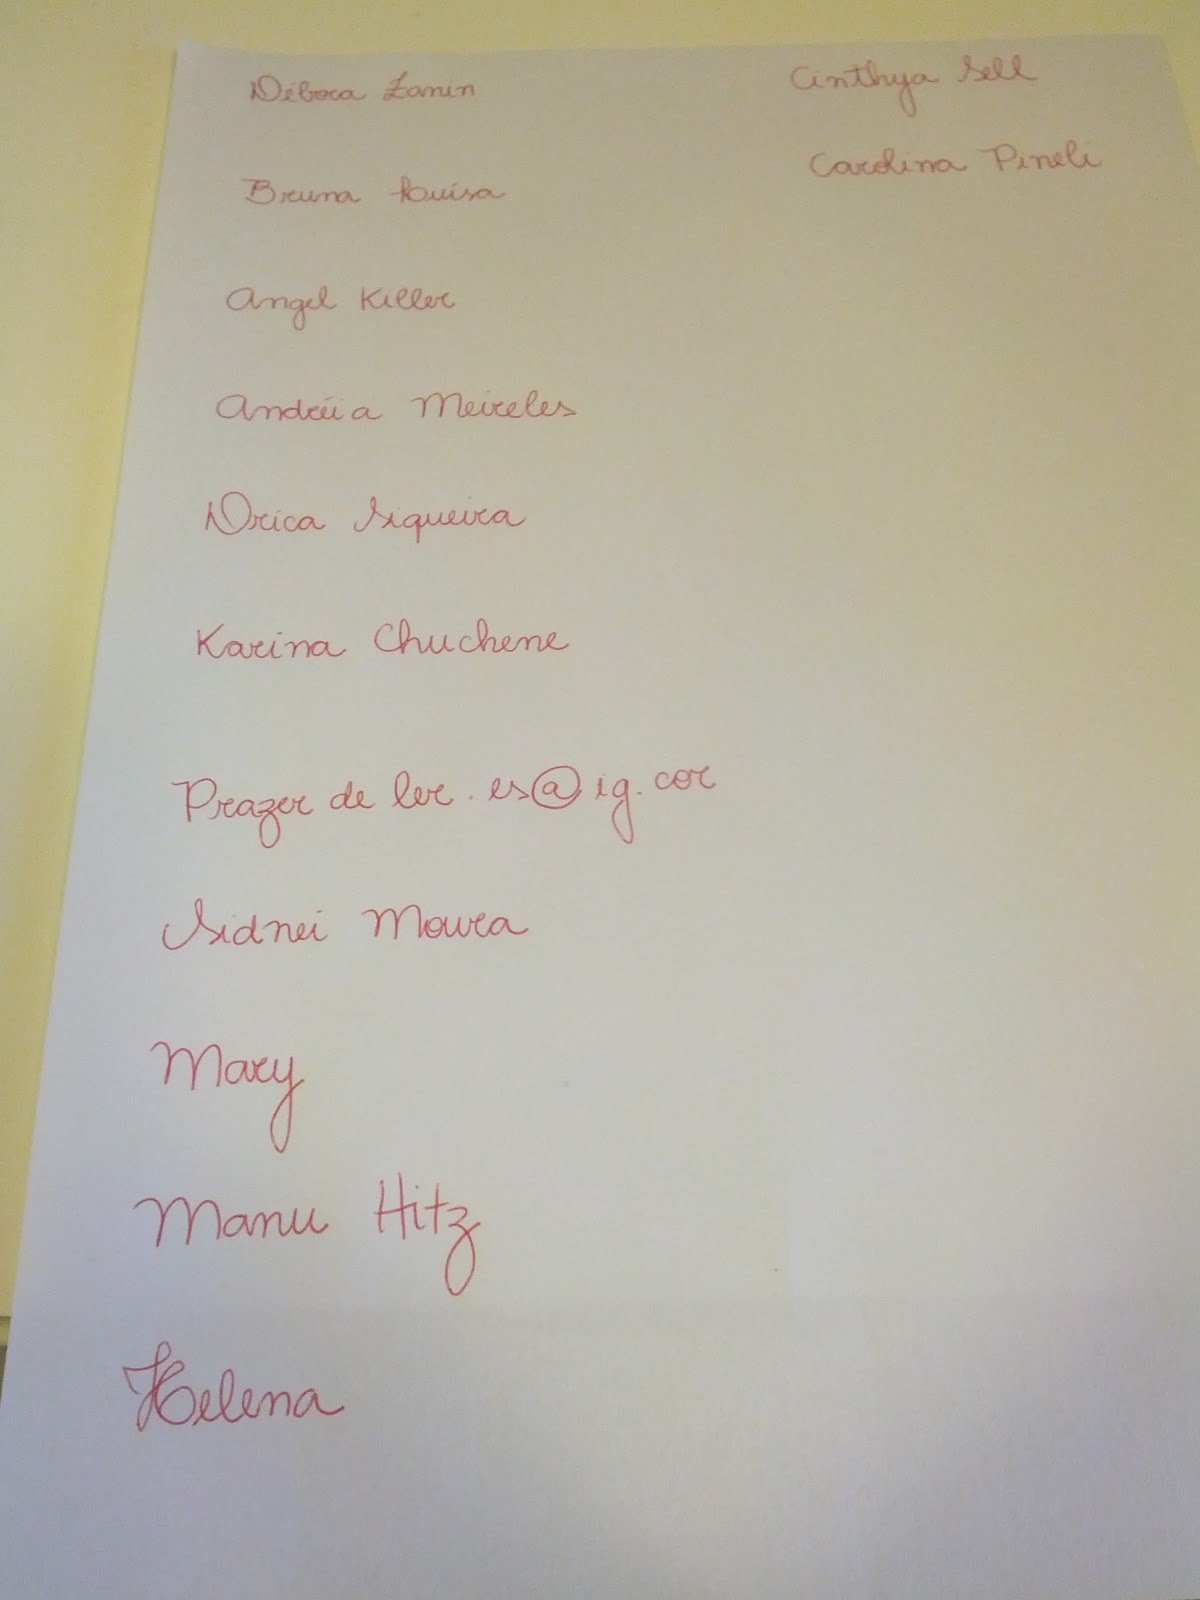 Débora Zanin
Bruna Luisa
Angel Killer
Andréia Meireles
Drica Siqueira
Karina Chuchene
Prazer de ler.es@ig.cor
Sidnei Moura
Mary
Manu Hitz
Helena
Cinthya Sell
Carolina Pineli